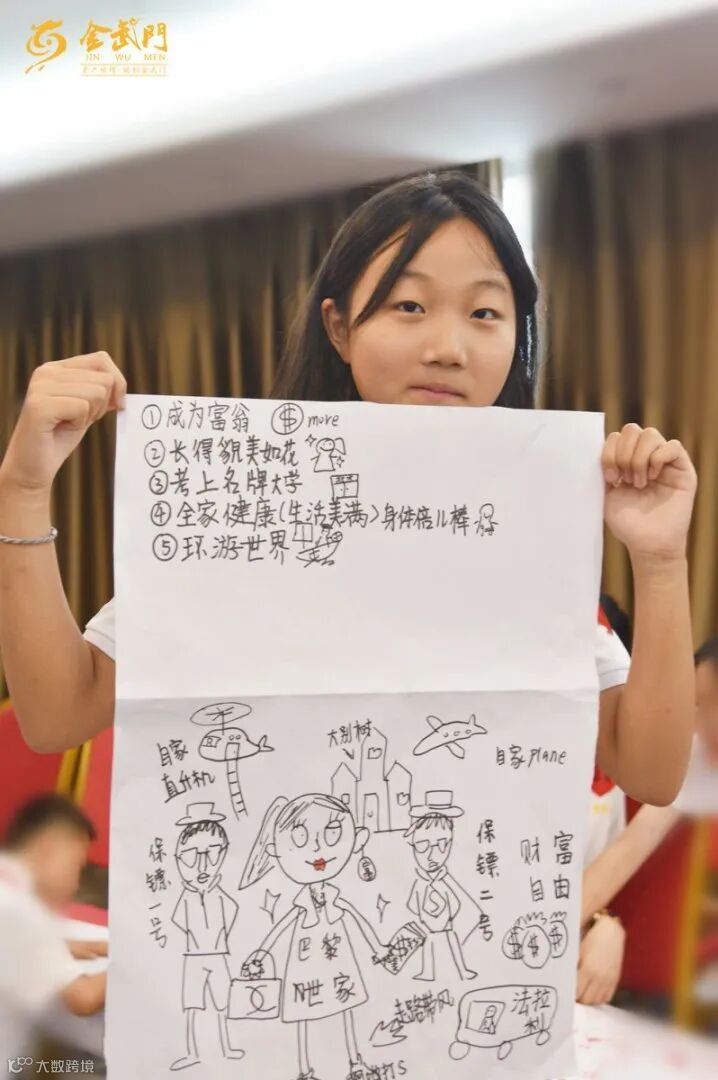 金武門
JIN WU MEN
①成为富翁 $ more
②长得貌美如花
③考上名牌大学
④全家健康(生活美满)身体倍儿棒
⑤环游世界
自家
直升机
大别树
自家 plane
保镖一号
保镖二号
财富
自由
$ $ $
富
巴黎
N世家
走路带风
法拉
利
大数跨境